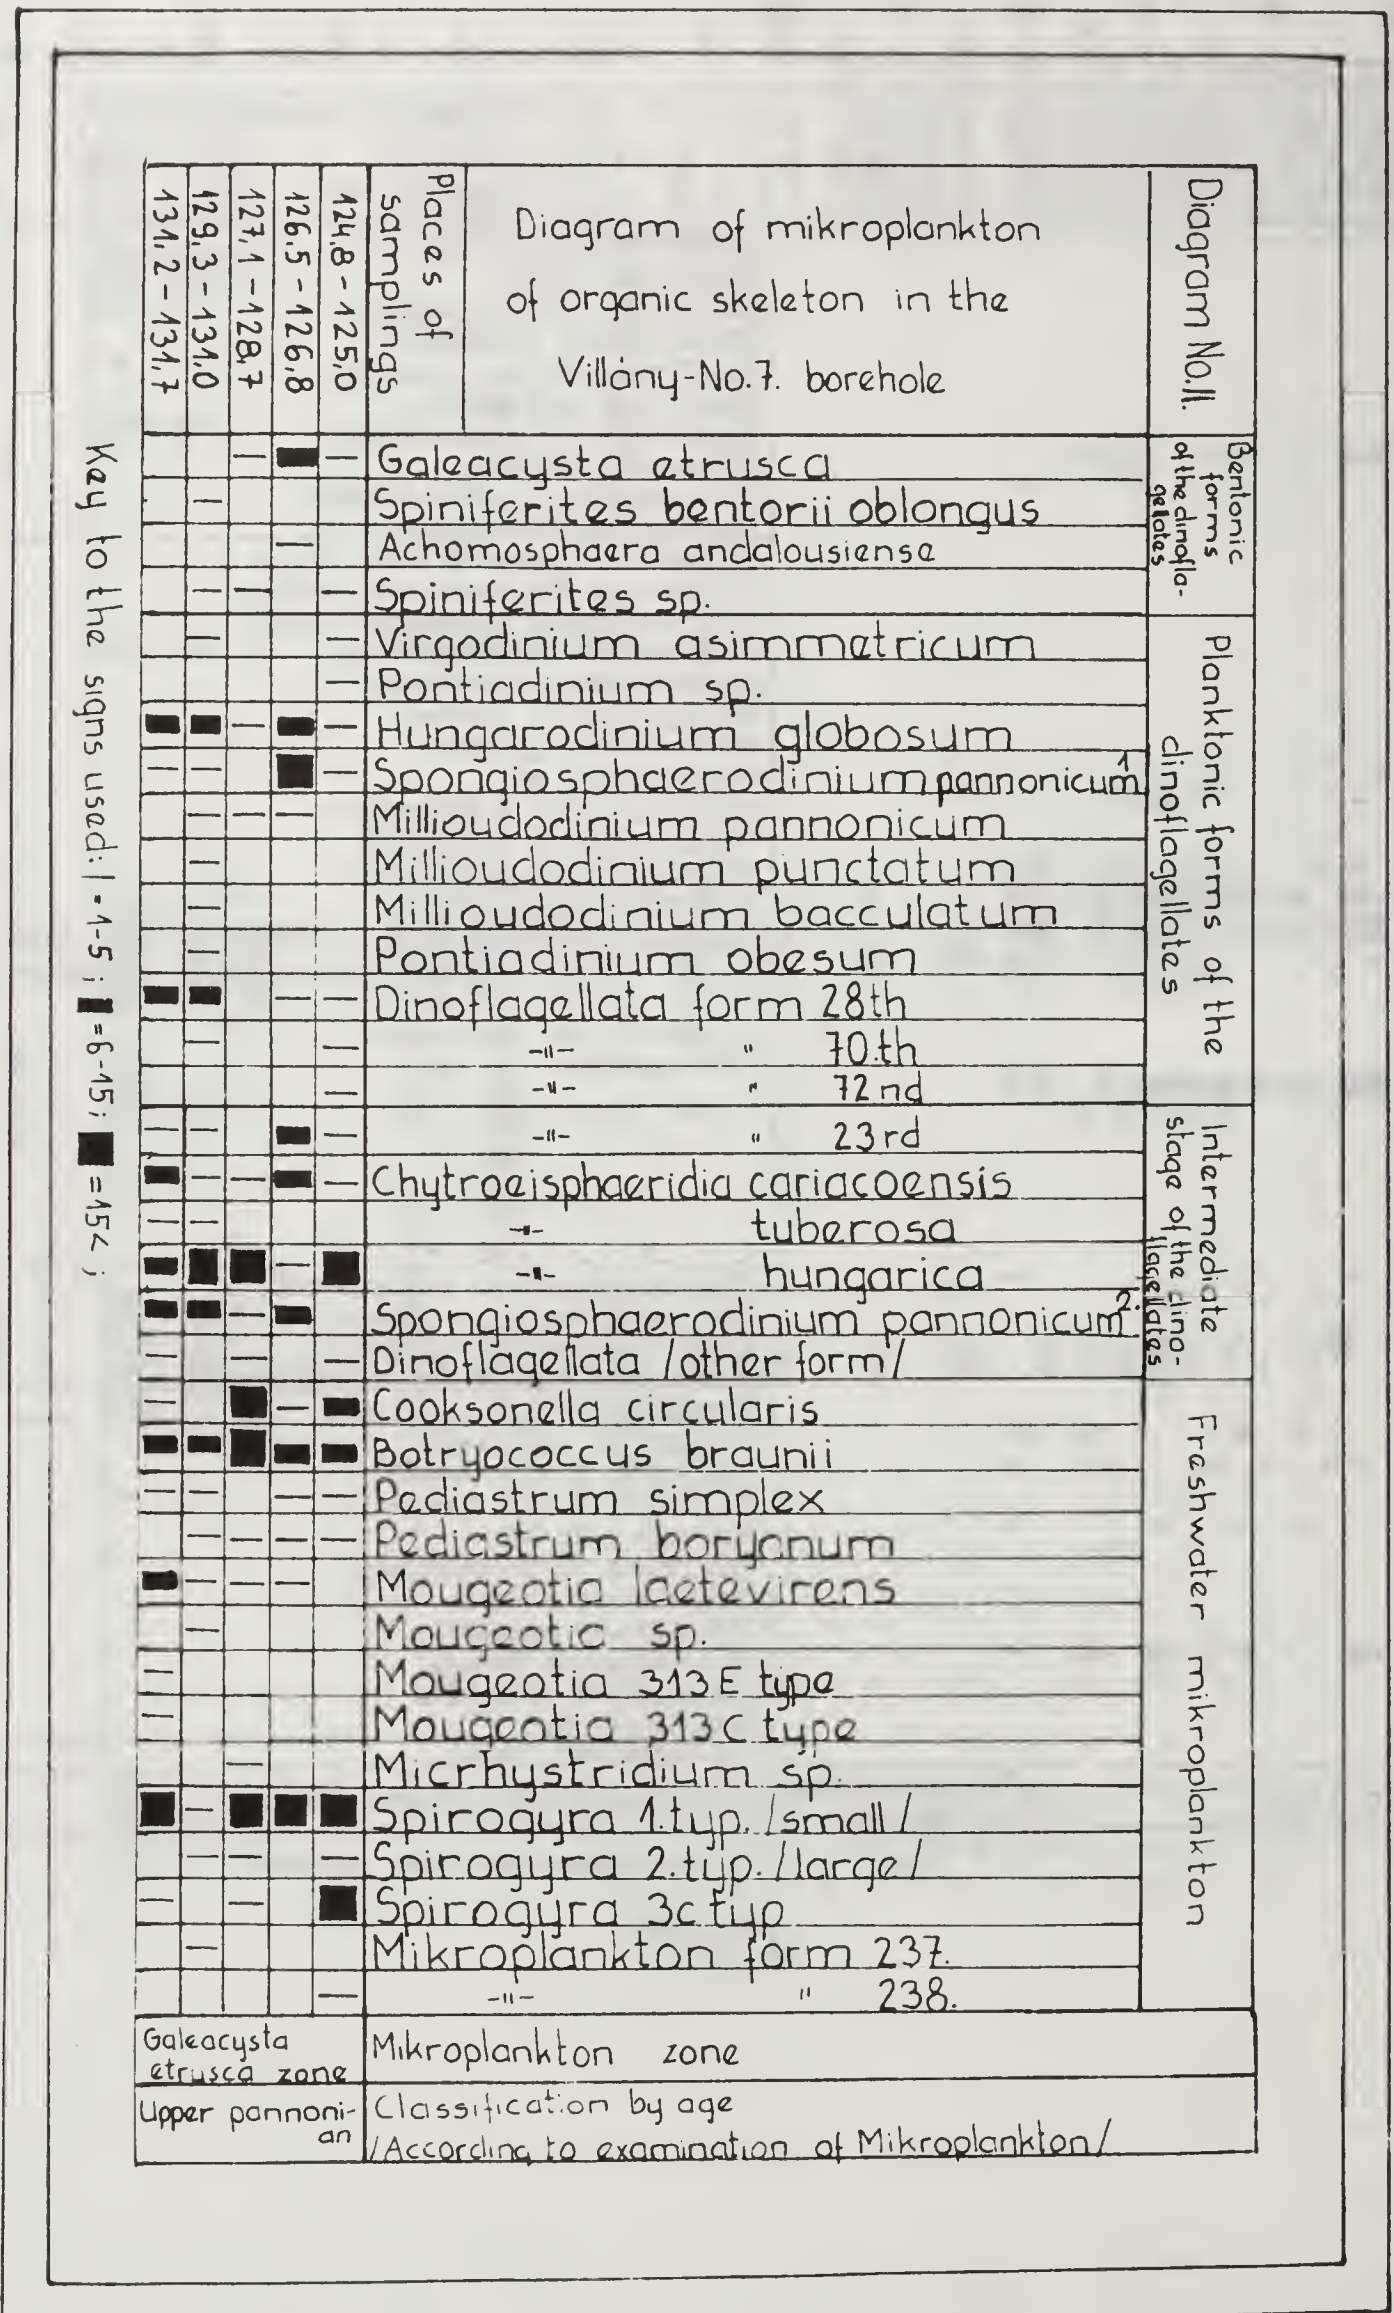 Diagram No.II.
Diagram of mikroplankton
of organic skeleton in the
Villány-No.7. borehole
Places of
samplings
124,8-125,0
126,5-126,8
127,1-128,7
129,3-131,0
131,2-131,7
Bentonic
forms
of the dinofla-
gelates
Galeacysta etrusca
Spiniferites bentorii oblongus
Achomosphaera andalousiense
Spiniferites sp.
Planktonic forms of the
dinoflagellates
Virgodinium asimmetricum
Pontiadinium sp.
Hungarodinium globosum
Spongiosphaerodinium pannonicum 1
Millioudodinium pannonicum
Millioudodinium punctatum
Millioudodinium bacculatum
Pontiadinium obesum
Dinoflagellata form 28th
-"- " 70.th
-"- " 72nd
Intermediate
stage of the dino-
flagellates
-"- " 23rd
Chytroeisphaeridia cariacoensis
-"- tuberosa
-"- hungarica
Spongiosphaerodinium pannonicum 2.
Dinoflagellata /other form/
Freshwater mikroplankton
Cooksonella circularis
Botryococcus braunii
Pediastrum simplex
Pediastrum boryanum
Mougeotia laetevirens
Mougeotia sp.
Mougeotia 313 E type
Mougeotia 313 C type
Micrhystridium sp.
Spirogyra 1.typ. /small/
Spirogyra 2.typ. /large/
Spirogyra 3c typ
Mikroplankton form 237.
-"- " 238.
Galeacysta
etrusca zone
Mikroplankton zone
Upper pannoni-
an
Classification by age
/According to examination of Mikroplankton/
Key to the signs used: | = 1-5 ; ▮ = 6-15; ■ = 15< ;